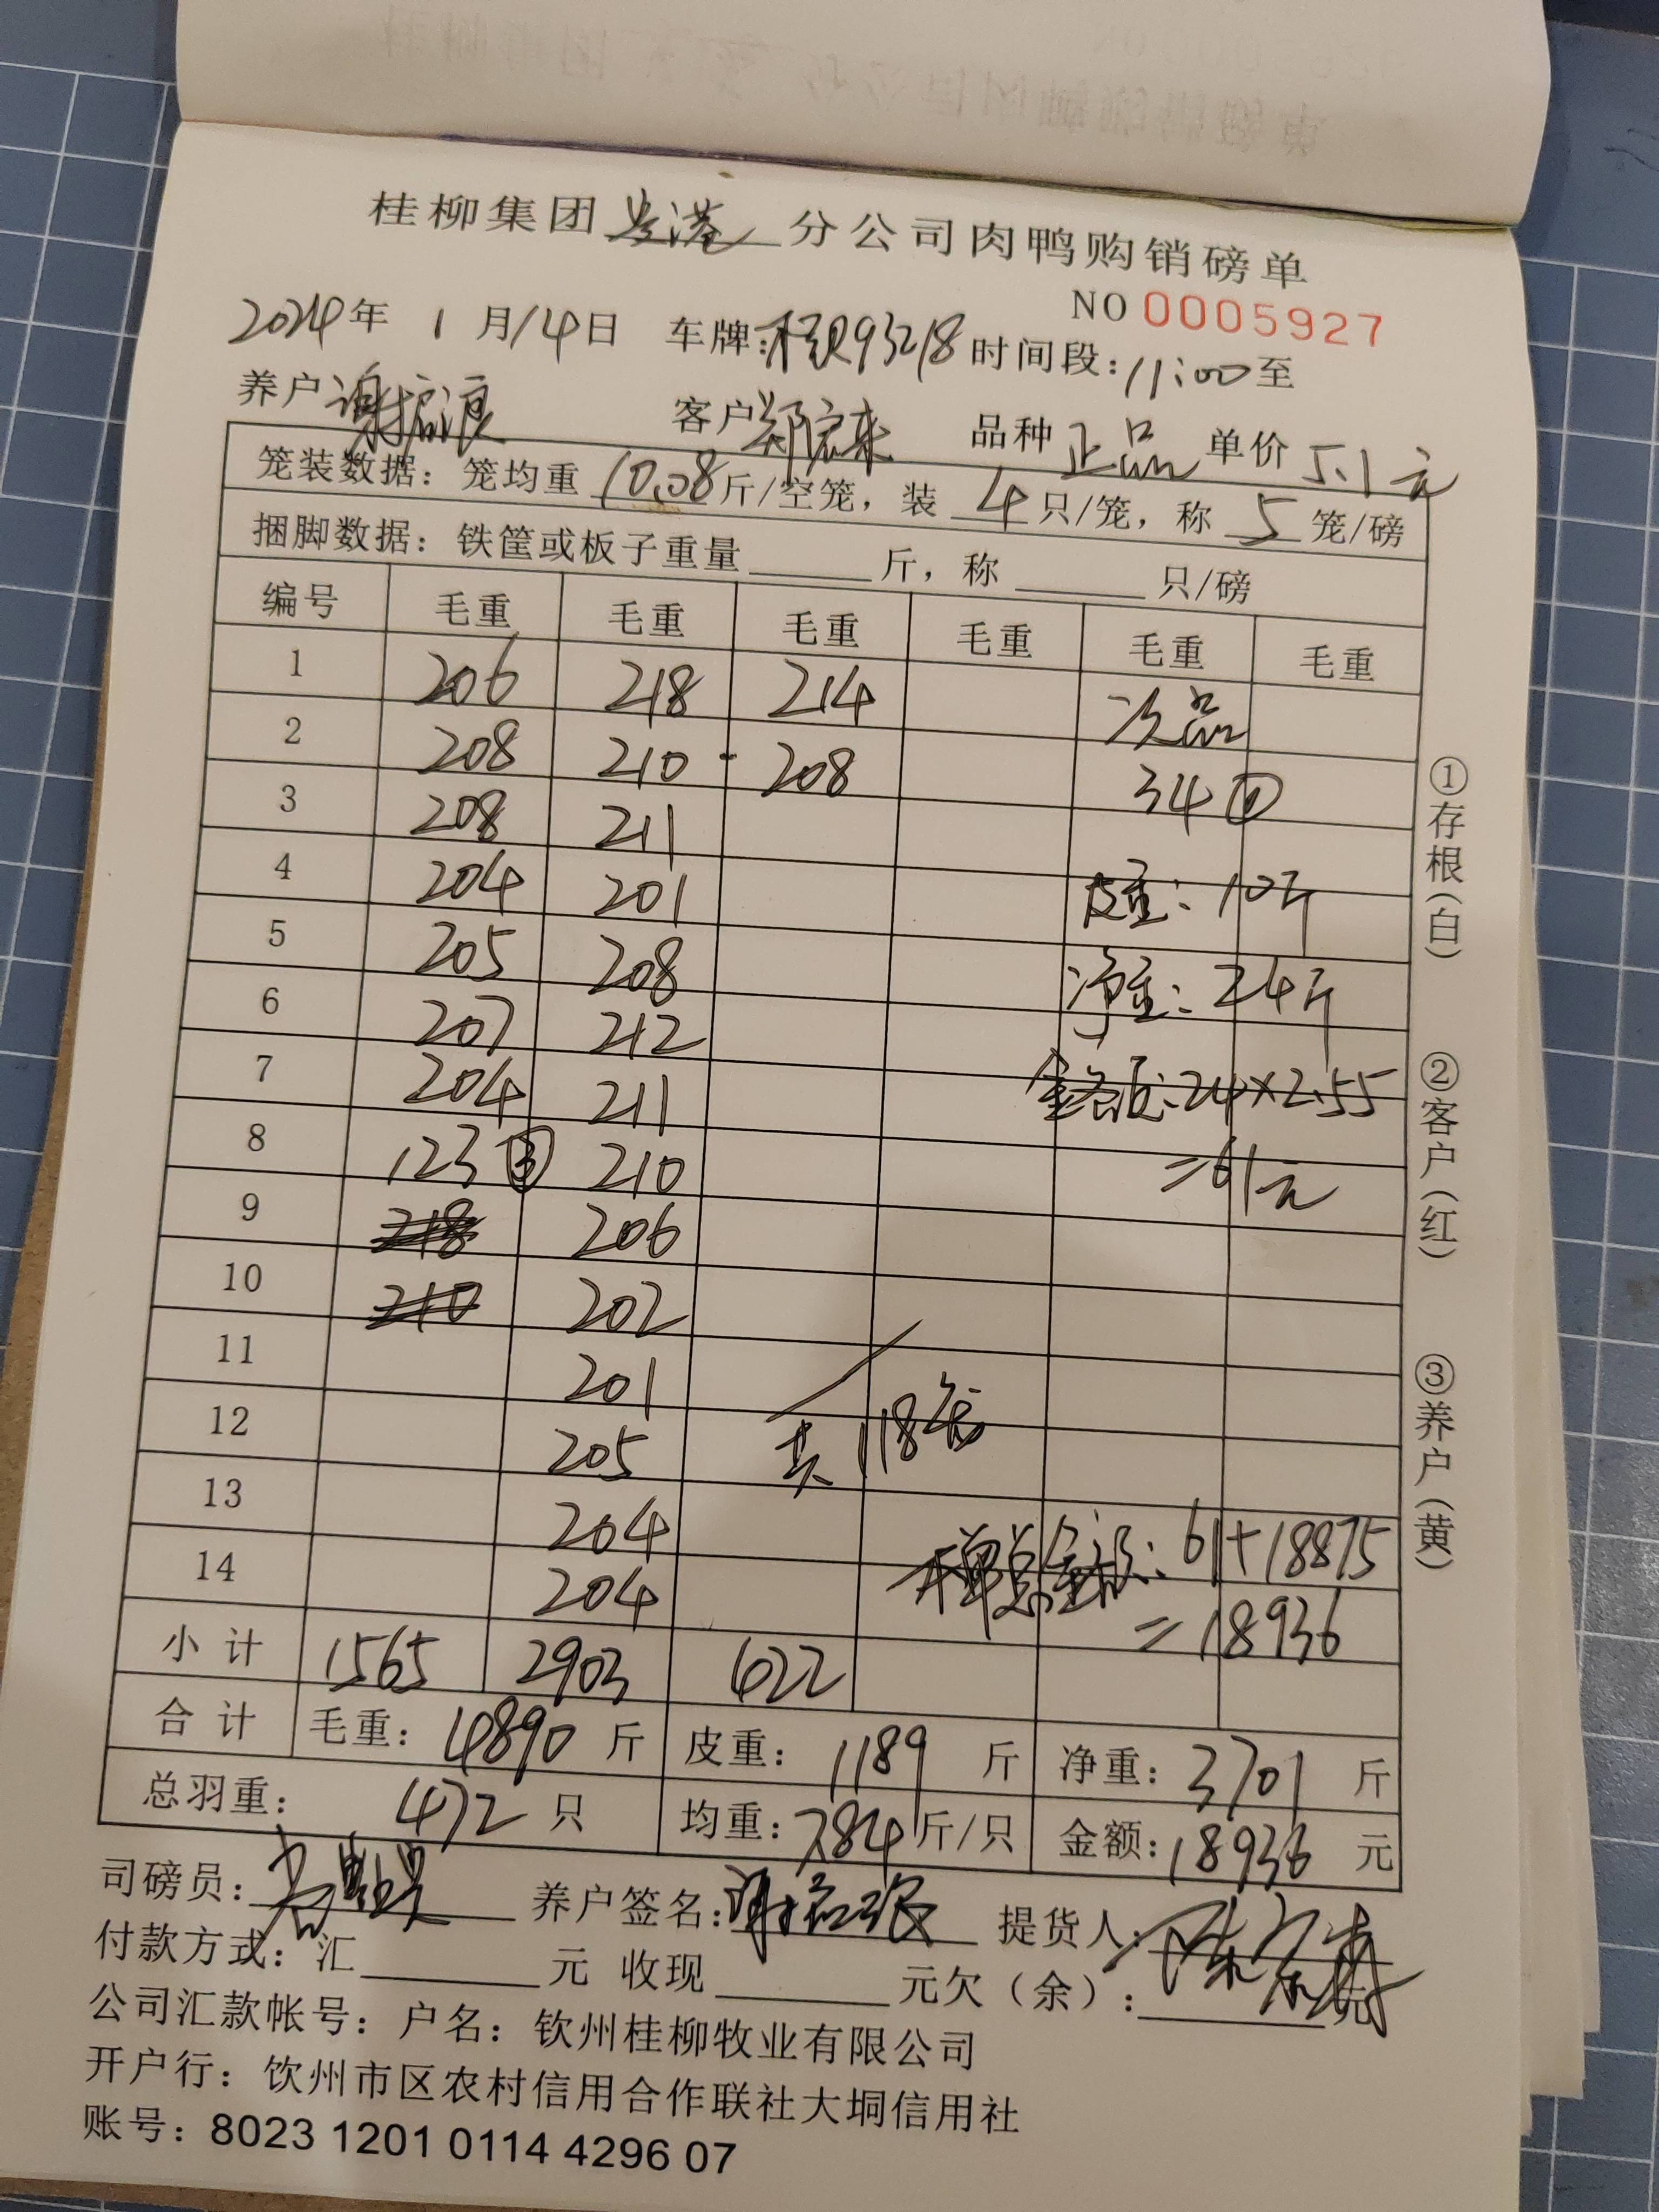 桂柳集团贵港分公司肉鸭购销磅单
NO 0005927
2024年 1月14日 车牌: 93218 时间段: 11:00至
养户 谢 客户 郑宏来 品种 正品 单价 5.1元
笼装数据: 笼均重 10.08斤/空笼, 装 4只/笼, 称 5 笼/磅
捆脚数据: 铁筐或板子重量 斤, 称 只/磅
编号 毛重 毛重 毛重 毛重 毛重 毛重
1 206 218 214 次品
2 208 210 208 34 ①
3 208 211
4 204 201 皮重: 10斤
5 205 208 净重: 24斤
6 207 212
7 204 211 金额: 24×2.55
8 123 ③ 210 =61元
9 218 206
10 210 202
11 201
12 205 共118笼
13 204 本单总金额: 61+18875
14 204 =18936
小计 1565 2903 422
合计 毛重: 4890 斤 皮重: 1189 斤 净重: 3701 斤
总羽重: 472 只 均重: 7.84斤/只 金额: 18936 元
司磅员: 养户签名: 谢 提货人: 陈
付款方式: 汇 元 收现 元欠(余): 元
公司汇款帐号: 户名: 钦州桂柳牧业有限公司
开户行: 钦州市区农村信用合作联社大垌信用社
账号: 8023 1201 0114 4296 07
①存根(白)
②客户(红)
③养户(黄)